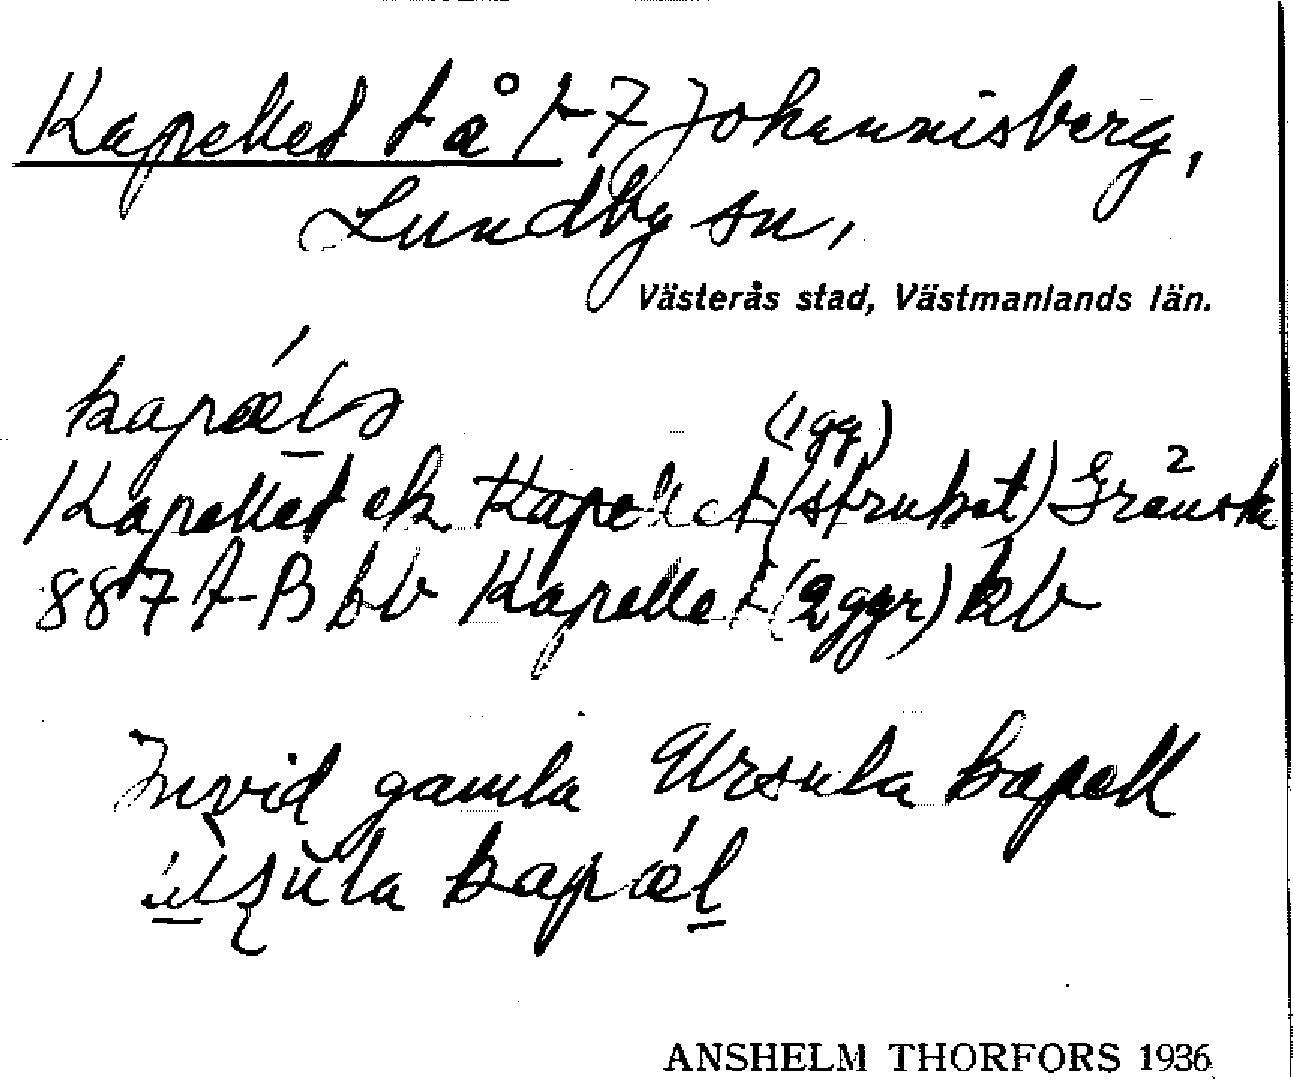 Kapellet t å 1-7 Johannisberg,
Lundby sn,
Västerås stad, Västmanlands län.
kapǽlə
(1 gg)
Kapellet ek Kapellet (struket)
887 A-B bv Kapellet (2 ggr) kv
Invid gamla Ursula kapell
kapǽl
ANSHELM THORFORS 1936